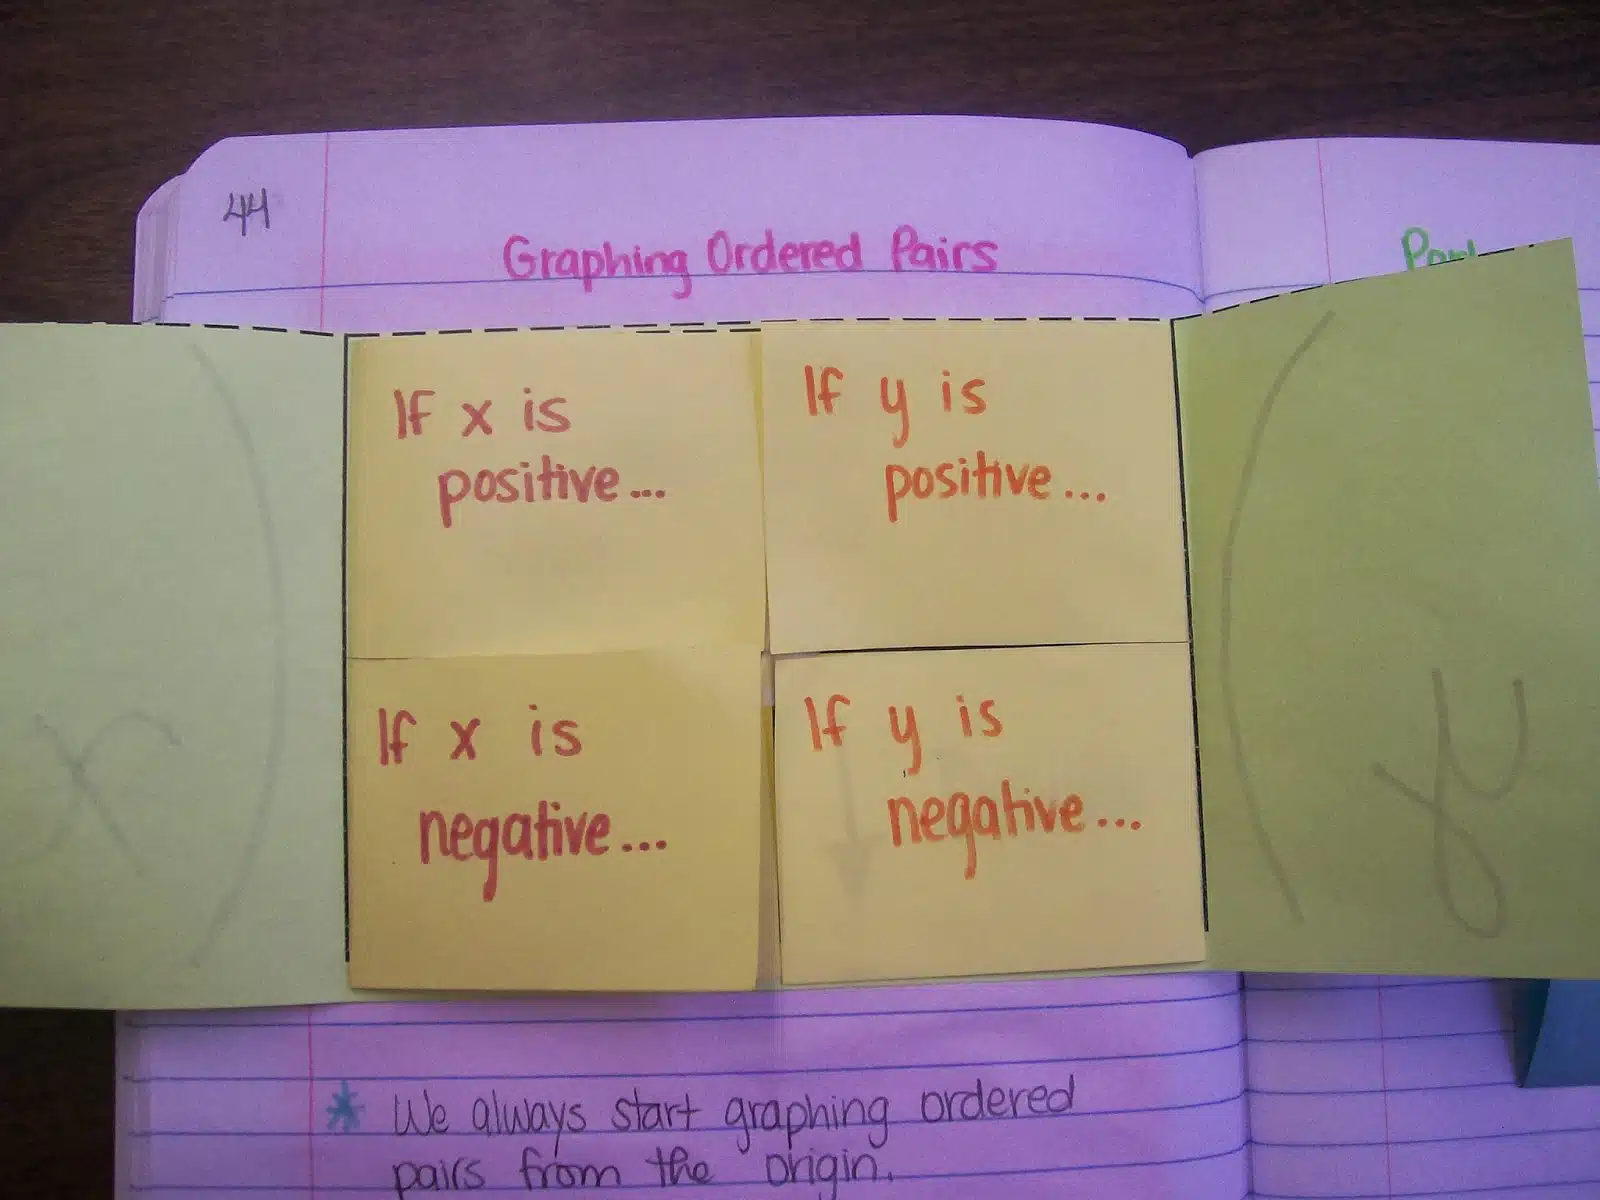 44
Graphing Ordered Pairs
If x is
positive...
If y is
positive...
If x is
negative...
If y is
negative...
* We always start graphing ordered
pairs from the origin.